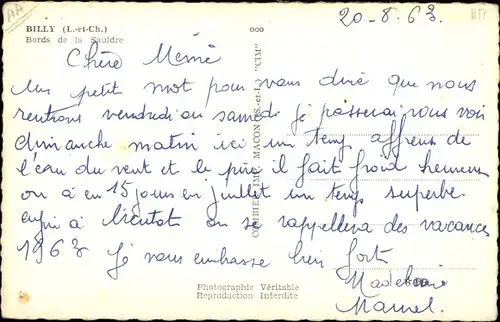 AA
20-8-63
BILLY (L.-et-Ch.)
Bords de la Sauldre
Chère Mémé
Un petit mot pour vous dire que nous
rentrons vendredi ou samedi je passerai vous voir
dimanche matin ici un temp affreux de
l'eau du vent et le pire il fait froid heureus
on a eu 15 jours en juillet un temps superbe
enfin à bientot on se rappellera des vacances
1963 je vous embrasse bien fort
Madeleine
Marcel.
COMBIER IMP. MACON (S.-et-L.) "CIM"
Photographie Véritable
Reproduction Interdite